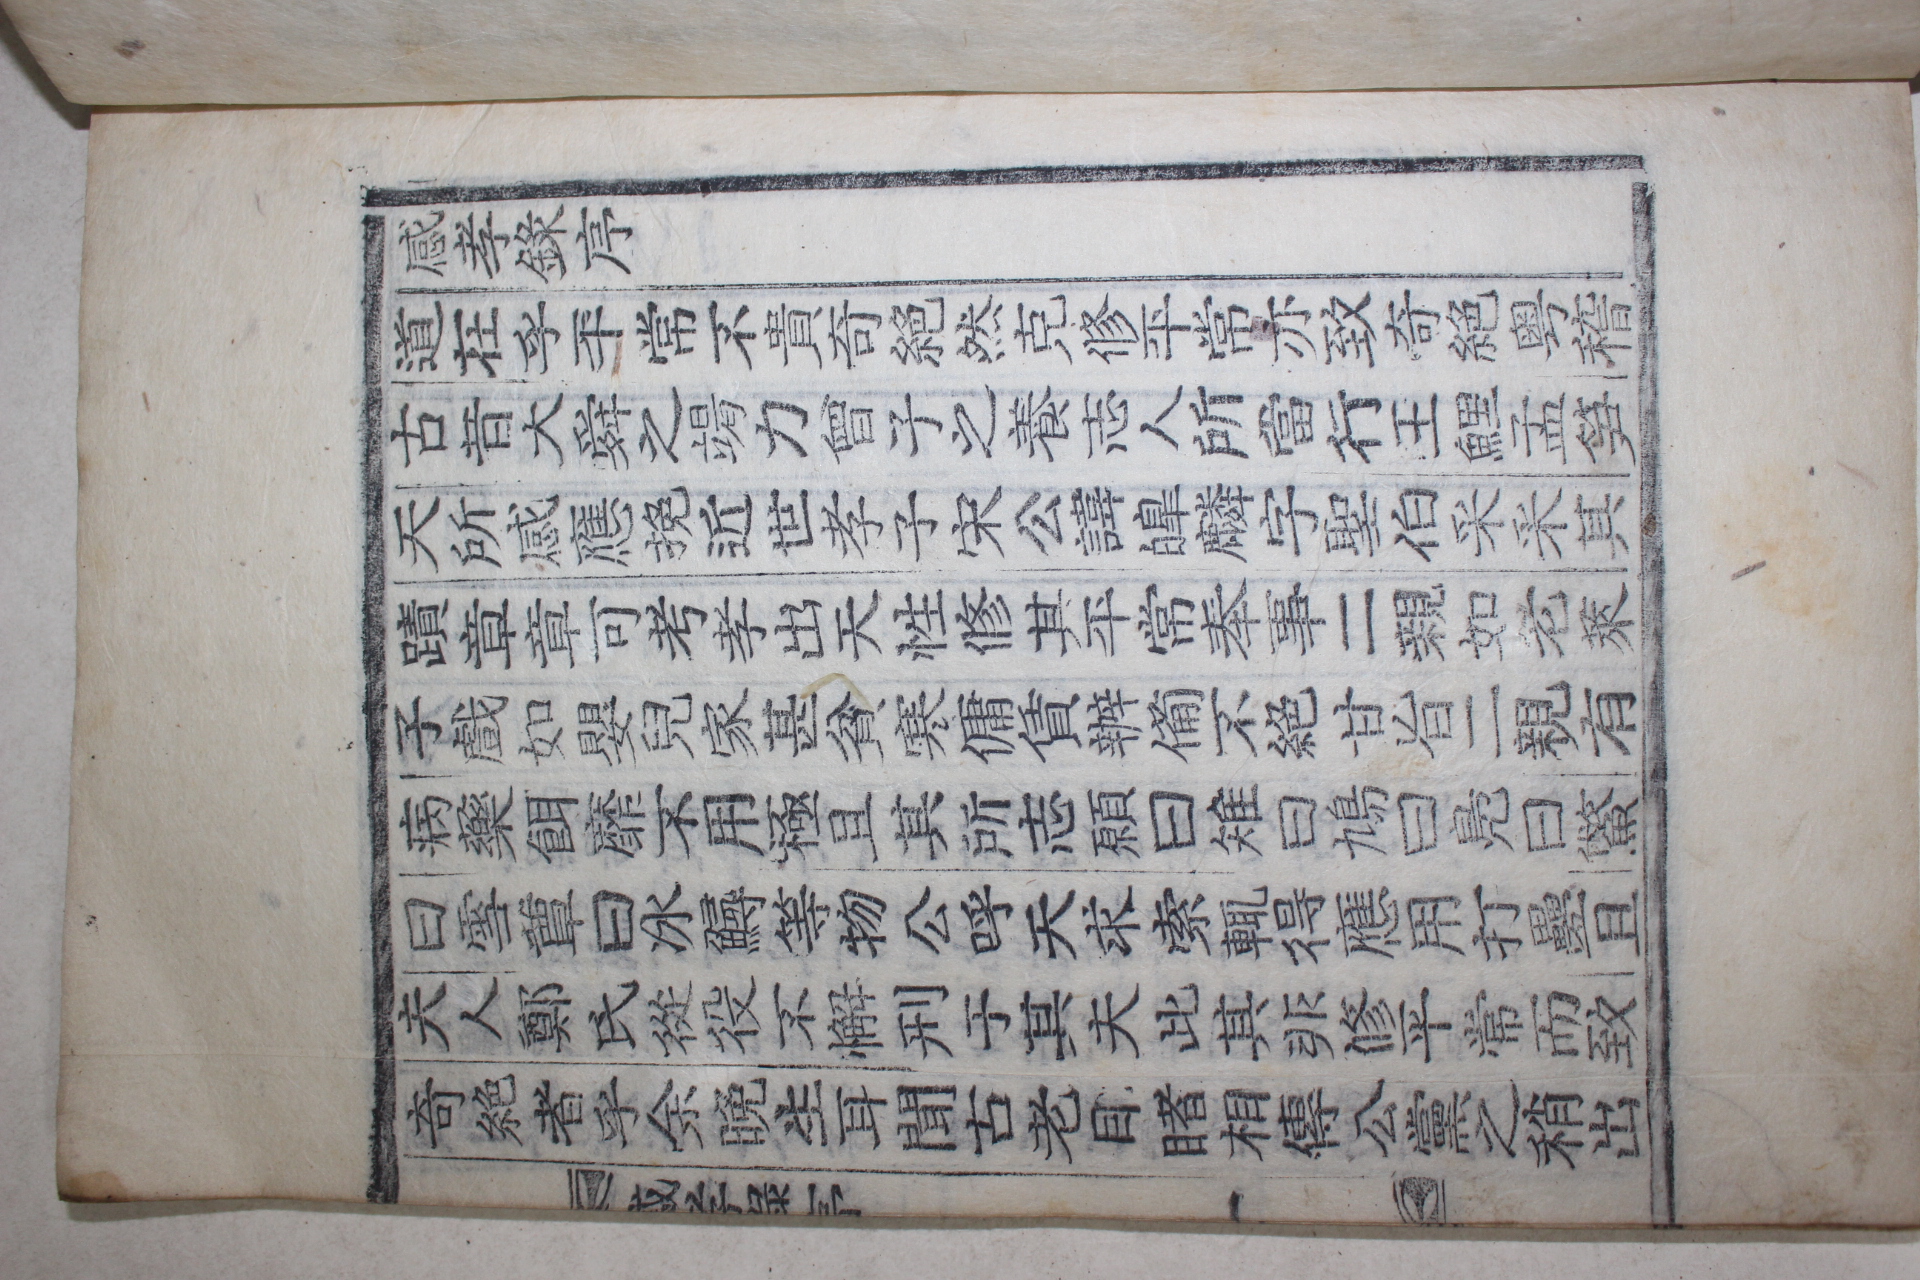 感孝錄序
道在乎平常不貴奇絶然克修平常亦致奇絶粤稽
古昔大舜之竭力曾子之養志人所當行王鯉孟筍
天所感應挽近世孝子宋公諱暐麟字聖伯采采其
蹟章章可考孝出天性修其平常奉事二親如老萊
子戱如嬰兒家甚貧寒傭賃辦備不絶甘旨二親有
病藥餌靡不用極且其所志願曰雉曰鳩曰鳧曰鱉
曰雪蕈曰氷鱘等物公呼天求索輒得應用 且
夫人鄭氏從役不懈刑于其夫此其非修平常而致
奇絶者乎余晩生耳聞古老目睹相傳公黨之稍出
感孝錄序 一